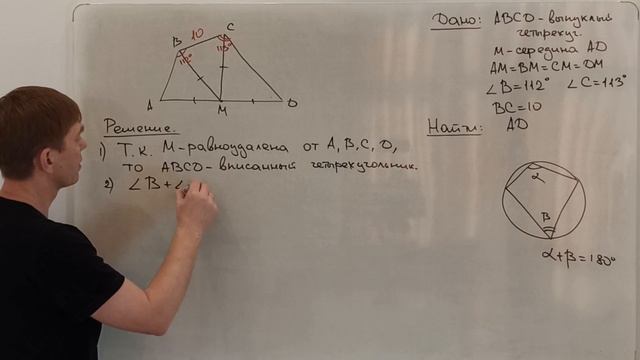 Дано: ABCD - выпуклый
четырехуг.
M - середина AD
AM=BM=CM=DM
∠B=112° ∠C=113°
BC=10
Найти: AD
B 10 C
112° 113°
A M D
Решение.
1) Т.к. M-равноудалена от A, B, C, D,
то ABCD-вписанный четырехугольник.
2) ∠B+∠
α
β
α+β=180°